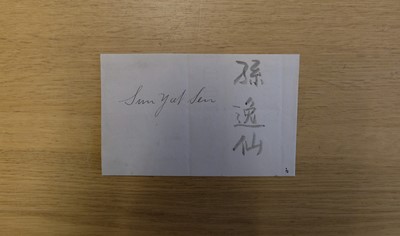 Sun Yat Sen
孫
逸
仙